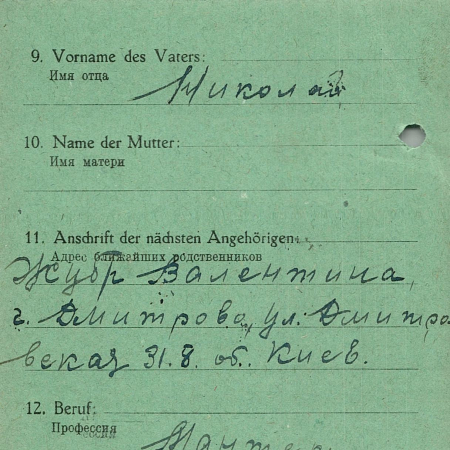 9. Vorname des Vaters:
Имя отца
Николай
10. Name der Mutter:
Имя матери
11. Anschrift der nächsten Angehörigen:
Адрес ближайших родственников
Жубр Валентина,
г. Дмитрово, ул. Дмитро
вская 31.8. об. Киев.
12. Beruf:
Профессия
Монтер